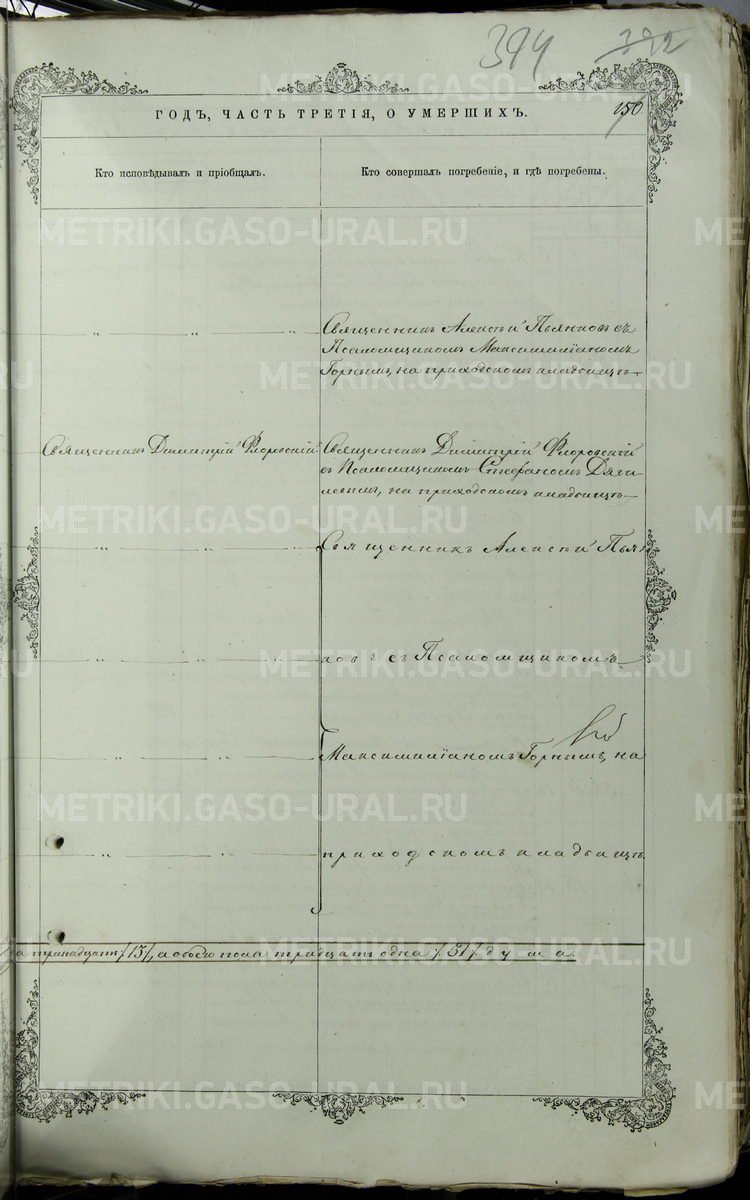 394 322
ГОДЪ, ЧАСТЬ ТРЕТІЯ, О УМЕРШИХЪ.
150
Кто исповѣдывалъ и пріобщалъ.
Кто совершалъ погребеніе, и гдѣ погребены.
METRIKI.GASO-URAL.RU
Священникъ Алексѣй Пьянковъ съ
Псаломщикомъ Максимиліаномъ
Горнымъ, на приходскомъ кладбищѣ
Священникъ Димитрій Флоровскій
Священникъ Димитрій Флоровскій
съ Псаломщикомъ Стефаномъ Дяги
левымъ, на приходскомъ кладбищѣ
Священникъ Алексѣй Пьян
ковъ съ Псаломщикомъ
Максимиліаномъ Горнымъ, на
приходскомъ кладбищѣ
тринадцать /13/, а обоего пола тридцать одна /31/ душа.